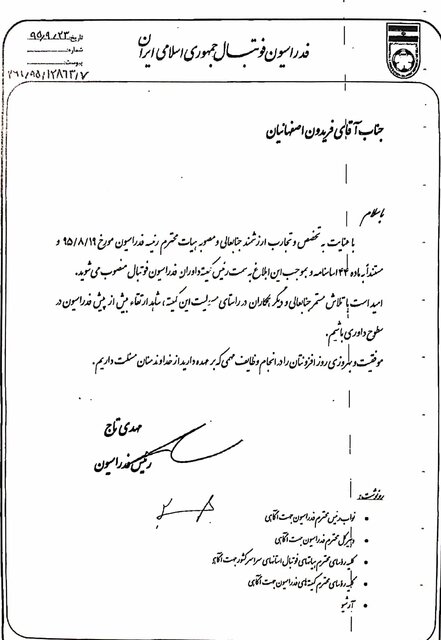 فدراسیون فوتبال جمهوری اسلامی ایران
تاریخ: ۹۵/۹/۲۳
شماره:
پیوست:
۲۶۱/۹۵/۱۲۸۶۳/۷
جناب آقای فریدون اصفهانیان
باسلام
با عنایت به تخصص و تجارب ارزشمند جنابعالی و مصوبه هیات محترم رئیسه فدراسیون مورخ ۹۵/۸/۱۹ و
مستنداً به ماده ۴۴ اساسنامه و بموجب این ابلاغ به سمت رئیس کمیته داوران فدراسیون فوتبال منصوب می شوید.
امید است با تلاش مستمر جنابعالی و دیگر همکاران در راستای مسئولیت این کمیته، شاهد ارتقاء بیش از پیش فدراسیون در
سطوح داوری باشیم.
موفقیت و پیروزی روز افزونتان را در انجام وظایف مهمی که بر عهده دارید از خداوند منان مسئلت داریم.
مهدی تاج
رئیس فدراسیون
رونوشت:
• نواب رئیس محترم فدراسیون جهت آگاهی
• دبیرکل محترم فدراسیون جهت آگاهی
• کلیه روسای محترم هیاتهای فوتبال استانهای سراسر کشور جهت آگاهی
• کلیه روسای محترم کمیته های فدراسیون جهت آگاهی
• آرشیو